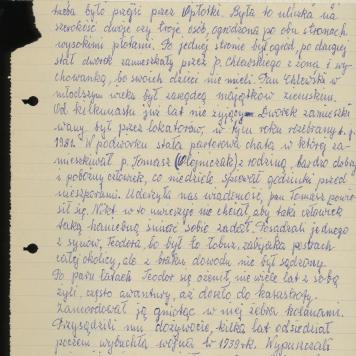 trzeba było przejść przez Opłotki. Była to uliczka na
szerokość dwóje czy troje osób, ogrodzona po obu stronach
wysokimi płotami. Po jednej stronie był ogród, po drugiej
stał dworek zamieszkały przez p. Chlewskiego z żoną i wy-
chowanką, bo swoich dzieci nie mieli. Pan Chlewski w
młodszym wieku był zarządcą majątków ziemskich.
Od kilkunastu już lat nie żyjący. Dworek zamieszki-
wany był przez lokatorów, w tym roku rozebrany t. j.
1981. W podwórku stała parterowa chata w której za-
mieszkiwał p. Tomasz (Olejniczak) z rodziną, bardzo dobry
i pobożny człowiek, co niedziele śpiewał godzinki przed
nieszporami. Uderzyła nas wiadomość, pan Tomasz powie-
sił się. Nikt w to wierzyć nie chciał, aby taki człowiek
taką haniebną śmierć sobie zadał. Posądzali jednego
z synów, Teodora, bo był to łobuz, zabijaka postrach
całej okolicy, ale z braku dowodu nie był sądzony.
Po paru latach Teodor się ożenił, nie wiele lat z sobą
żyli, często awantury, aż doszło do katastrofy.
Zamordował ją gniotąc w niej żebra kolanami.
Przysądzili mu dożywocie, kilka lat odsiedział
poczem wybuchła wojna w 1939 r. Wypuszczali